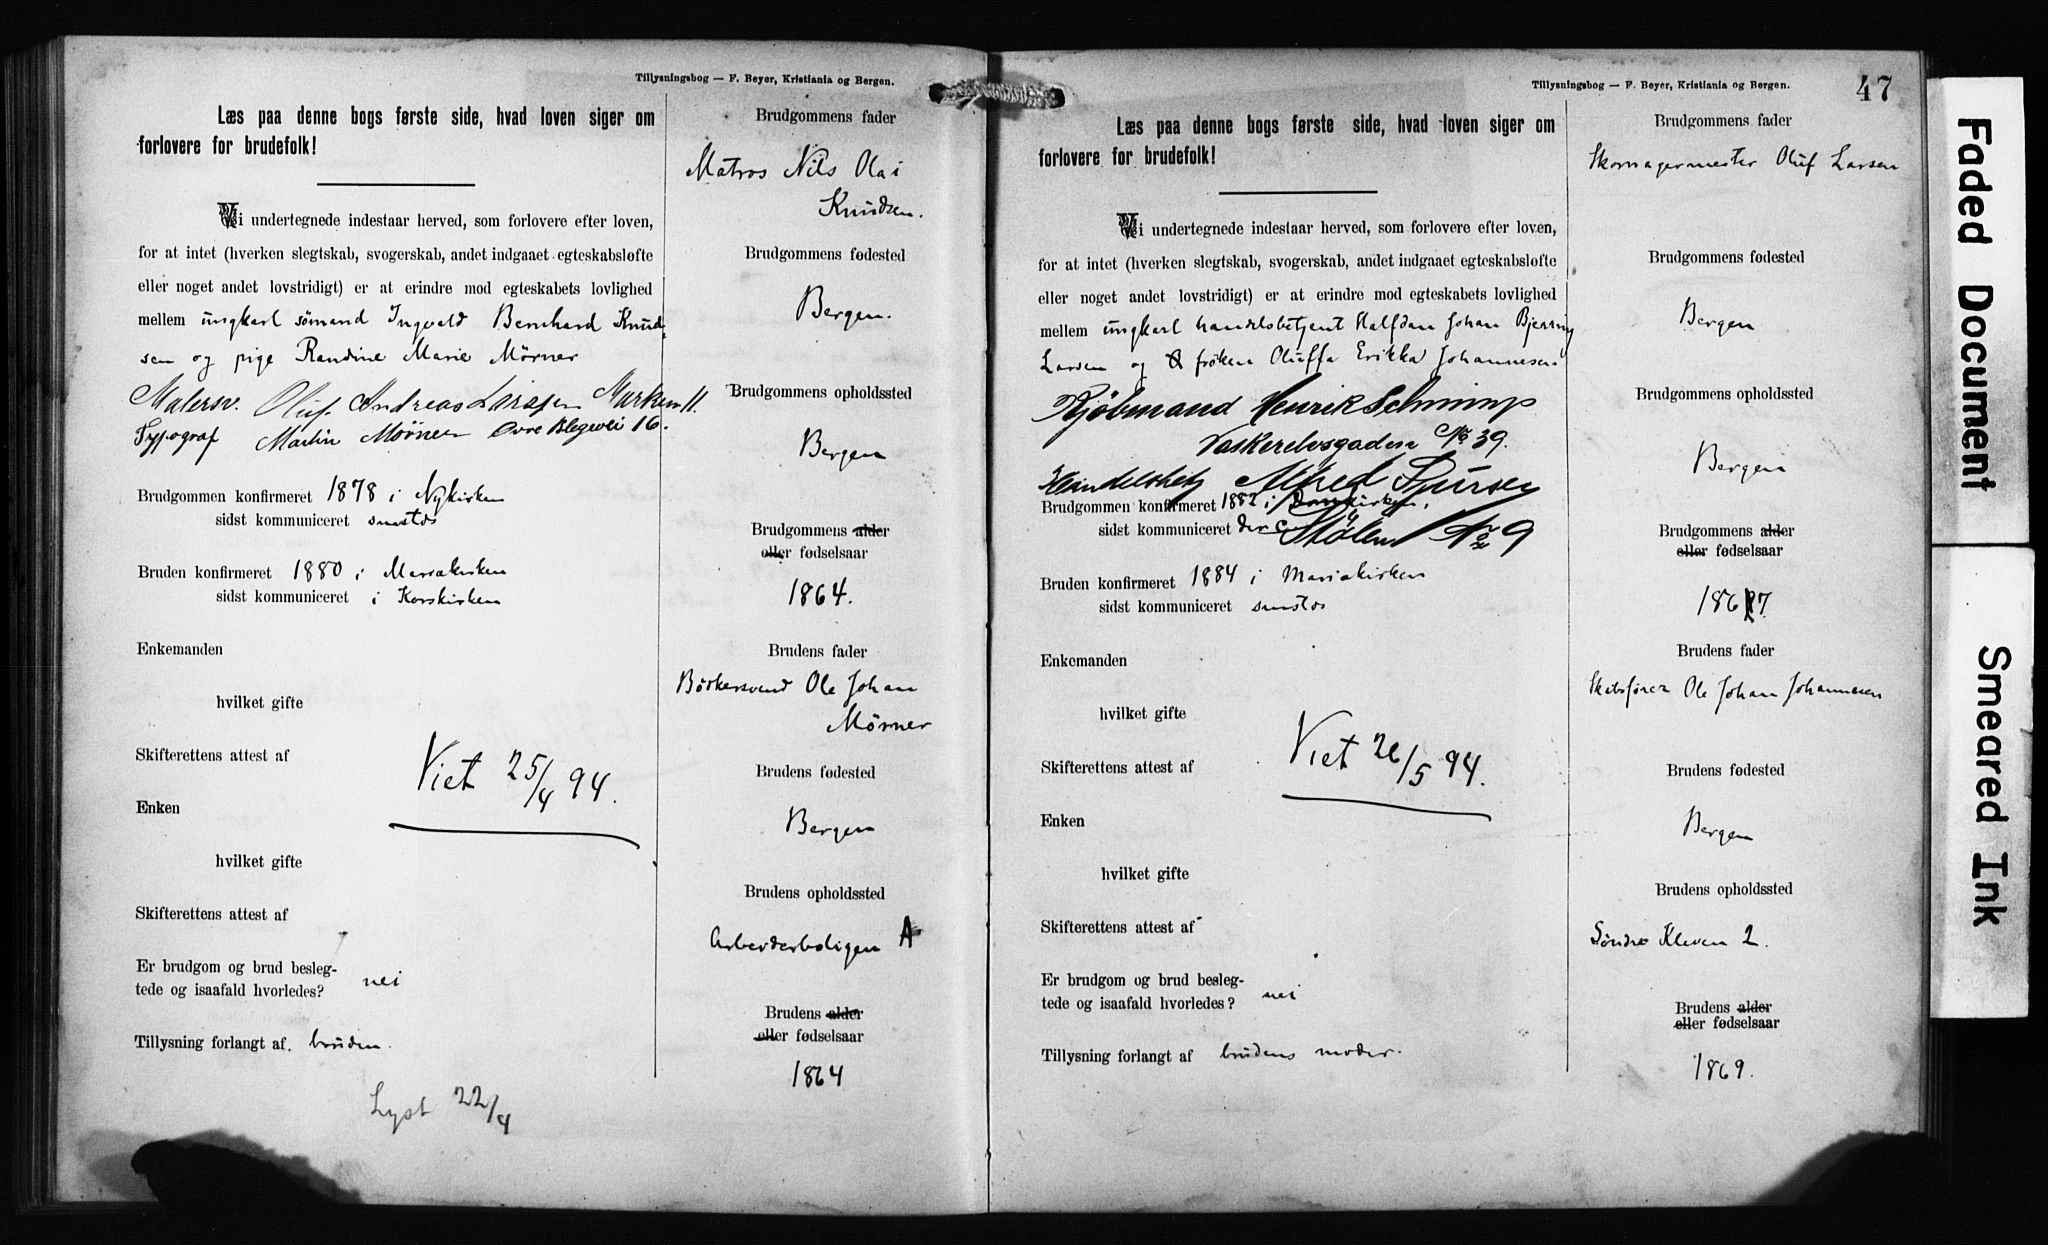 Tillysningsbog — F. Beyer, Kristiania og Bergen.
Læs paa denne bogs første side, hvad loven siger om
forlovere for brudefolk!
Vi undertegnede indestaar herved, som forlovere efter loven,
for at intet (hverken slegtskab, svogerskab, andet indgaaet egteskabsløfte
eller noget andet lovstridigt) er at erindre mod egteskabets lovlighed
mellem ungkarl sømand Ingvald Bernhard Knud-
sen og pige Randine Marie Mørner
Malersv. Oluf Andreas Larssen Marken 11.
Typograf Martin Mørner Øvre Blegevei 16.
Brudgommen konfirmeret 1878 i Nykirken
sidst kommuniceret smstds
Bruden konfirmeret 1880 i Mariakirken
sidst kommuniceret i Korskirken
Enkemanden
hvilket gifte
Skifterettens attest af
Viet 25/4 94.
Enken
hvilket gifte
Skifterettens attest af
Er brudgom og brud besleg-
tede og isaafald hvorledes? nei
Tillysning forlangt af. bruden.
Lyst 22/4
Brudgommens fader
Matros Nils Olai
Knudsen.
Brudgommens fødested
Bergen.
Brudgommens opholdssted
Bergen
Brudgommens alder
eller fødselsaar
1864.
Brudens fader
Bødkersvend Ole Johan
Mørner
Brudens fødested
Bergen
Brudens opholdssted
Arbeiderboligen A
Brudens alder
eller fødselsaar
1864
Tillysningsbog — F. Beyer, Kristiania og Bergen.
47
Læs paa denne bogs første side, hvad loven siger om
forlovere for brudefolk!
Vi undertegnede indestaar herved, som forlovere efter loven,
for at intet (hverken slegtskab, svogerskab, andet indgaaet egteskabsløfte
eller noget andet lovstridigt) er at erindre mod egteskabets lovlighed
mellem ungkarl handelsbetjent Halfdan Johan Bjerring
Larsen og frøken Oluffa Erikka Johannesen
Kjøbmand Henrik
Vaskerelvsgaden No 39.
Handelsbetj Alfred
Brudgommen konfirmeret 1882 i Domkirken.
sidst kommuniceret
Stølen No 9
Bruden konfirmeret 1884 i Mariakirken
sidst kommuniceret smstds
Enkemanden
hvilket gifte
Skifterettens attest af
Viet 26/5 94.
Enken
hvilket gifte
Skifterettens attest af
Er brudgom og brud besleg-
tede og isaafald hvorledes? nei
Tillysning forlangt af brudens moder.
Brudgommens fader
Skomagermester Oluf Larsen
Brudgommens fødested
Bergen
Brudgommens opholdssted
Bergen
Brudgommens alder
eller fødselsaar
1867.
Brudens fader
Skibsfører Ole Johan Johannesen
Brudens fødested
Bergen
Brudens opholdssted
Søndre Kleven 2.
Brudens alder
eller fødselsaar
1869.
Faded Document
Smeared Ink